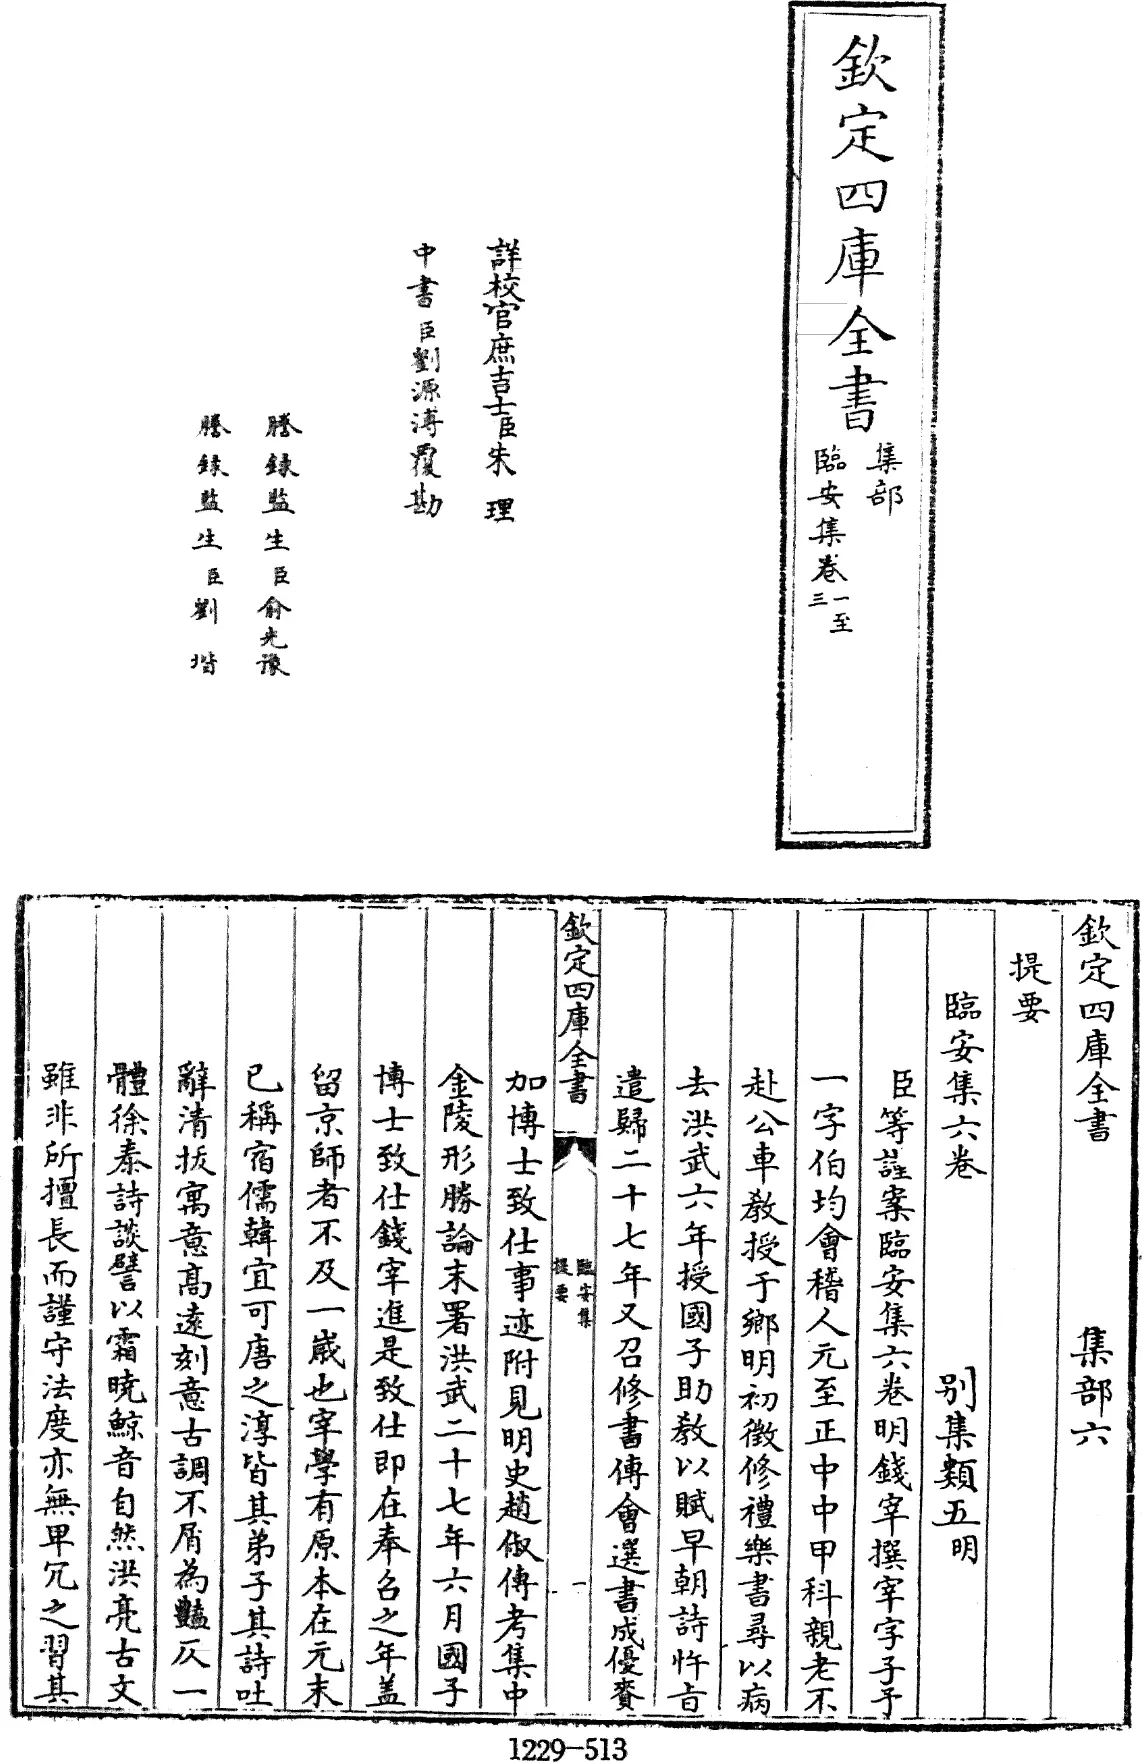 欽定四庫全書
集部
臨安集卷一至
三
詳校官庶吉士臣朱理
中書臣劉源溥覆勘
謄錄監生臣俞光豫
謄錄監生臣劉堦
欽定四庫全書 集部六
提要
臨安集六卷 别集類五明
臣等謹案臨安集六卷明錢宰撰宰字子予
一字伯均會稽人元至正中中甲科親老不
赴公車敎授于鄉明初徵修禮樂書尋以病
去洪武六年授國子助敎以賦早朝詩忤旨
遣歸二十七年又召修書傳會選書成優賚
欽定四庫全書
臨安集
提要
一
加博士致仕事迹附見明史趙俶傳考集中
金陵形勝論末署洪武二十七年六月國子
博士致仕錢宰進是致仕即在奉召之年盖
留京師者不及一嵗也宰學有原本在元末
已稱宿儒韓宜可唐之淳皆其弟子其詩吐
辭清拔寓意髙逺刻意古調不屑為豔仄一
體徐泰詩談譬以霜曉鯨音自然洪亮古文
雖非所擅長而謹守法度亦無卑冗之習其
1229-513